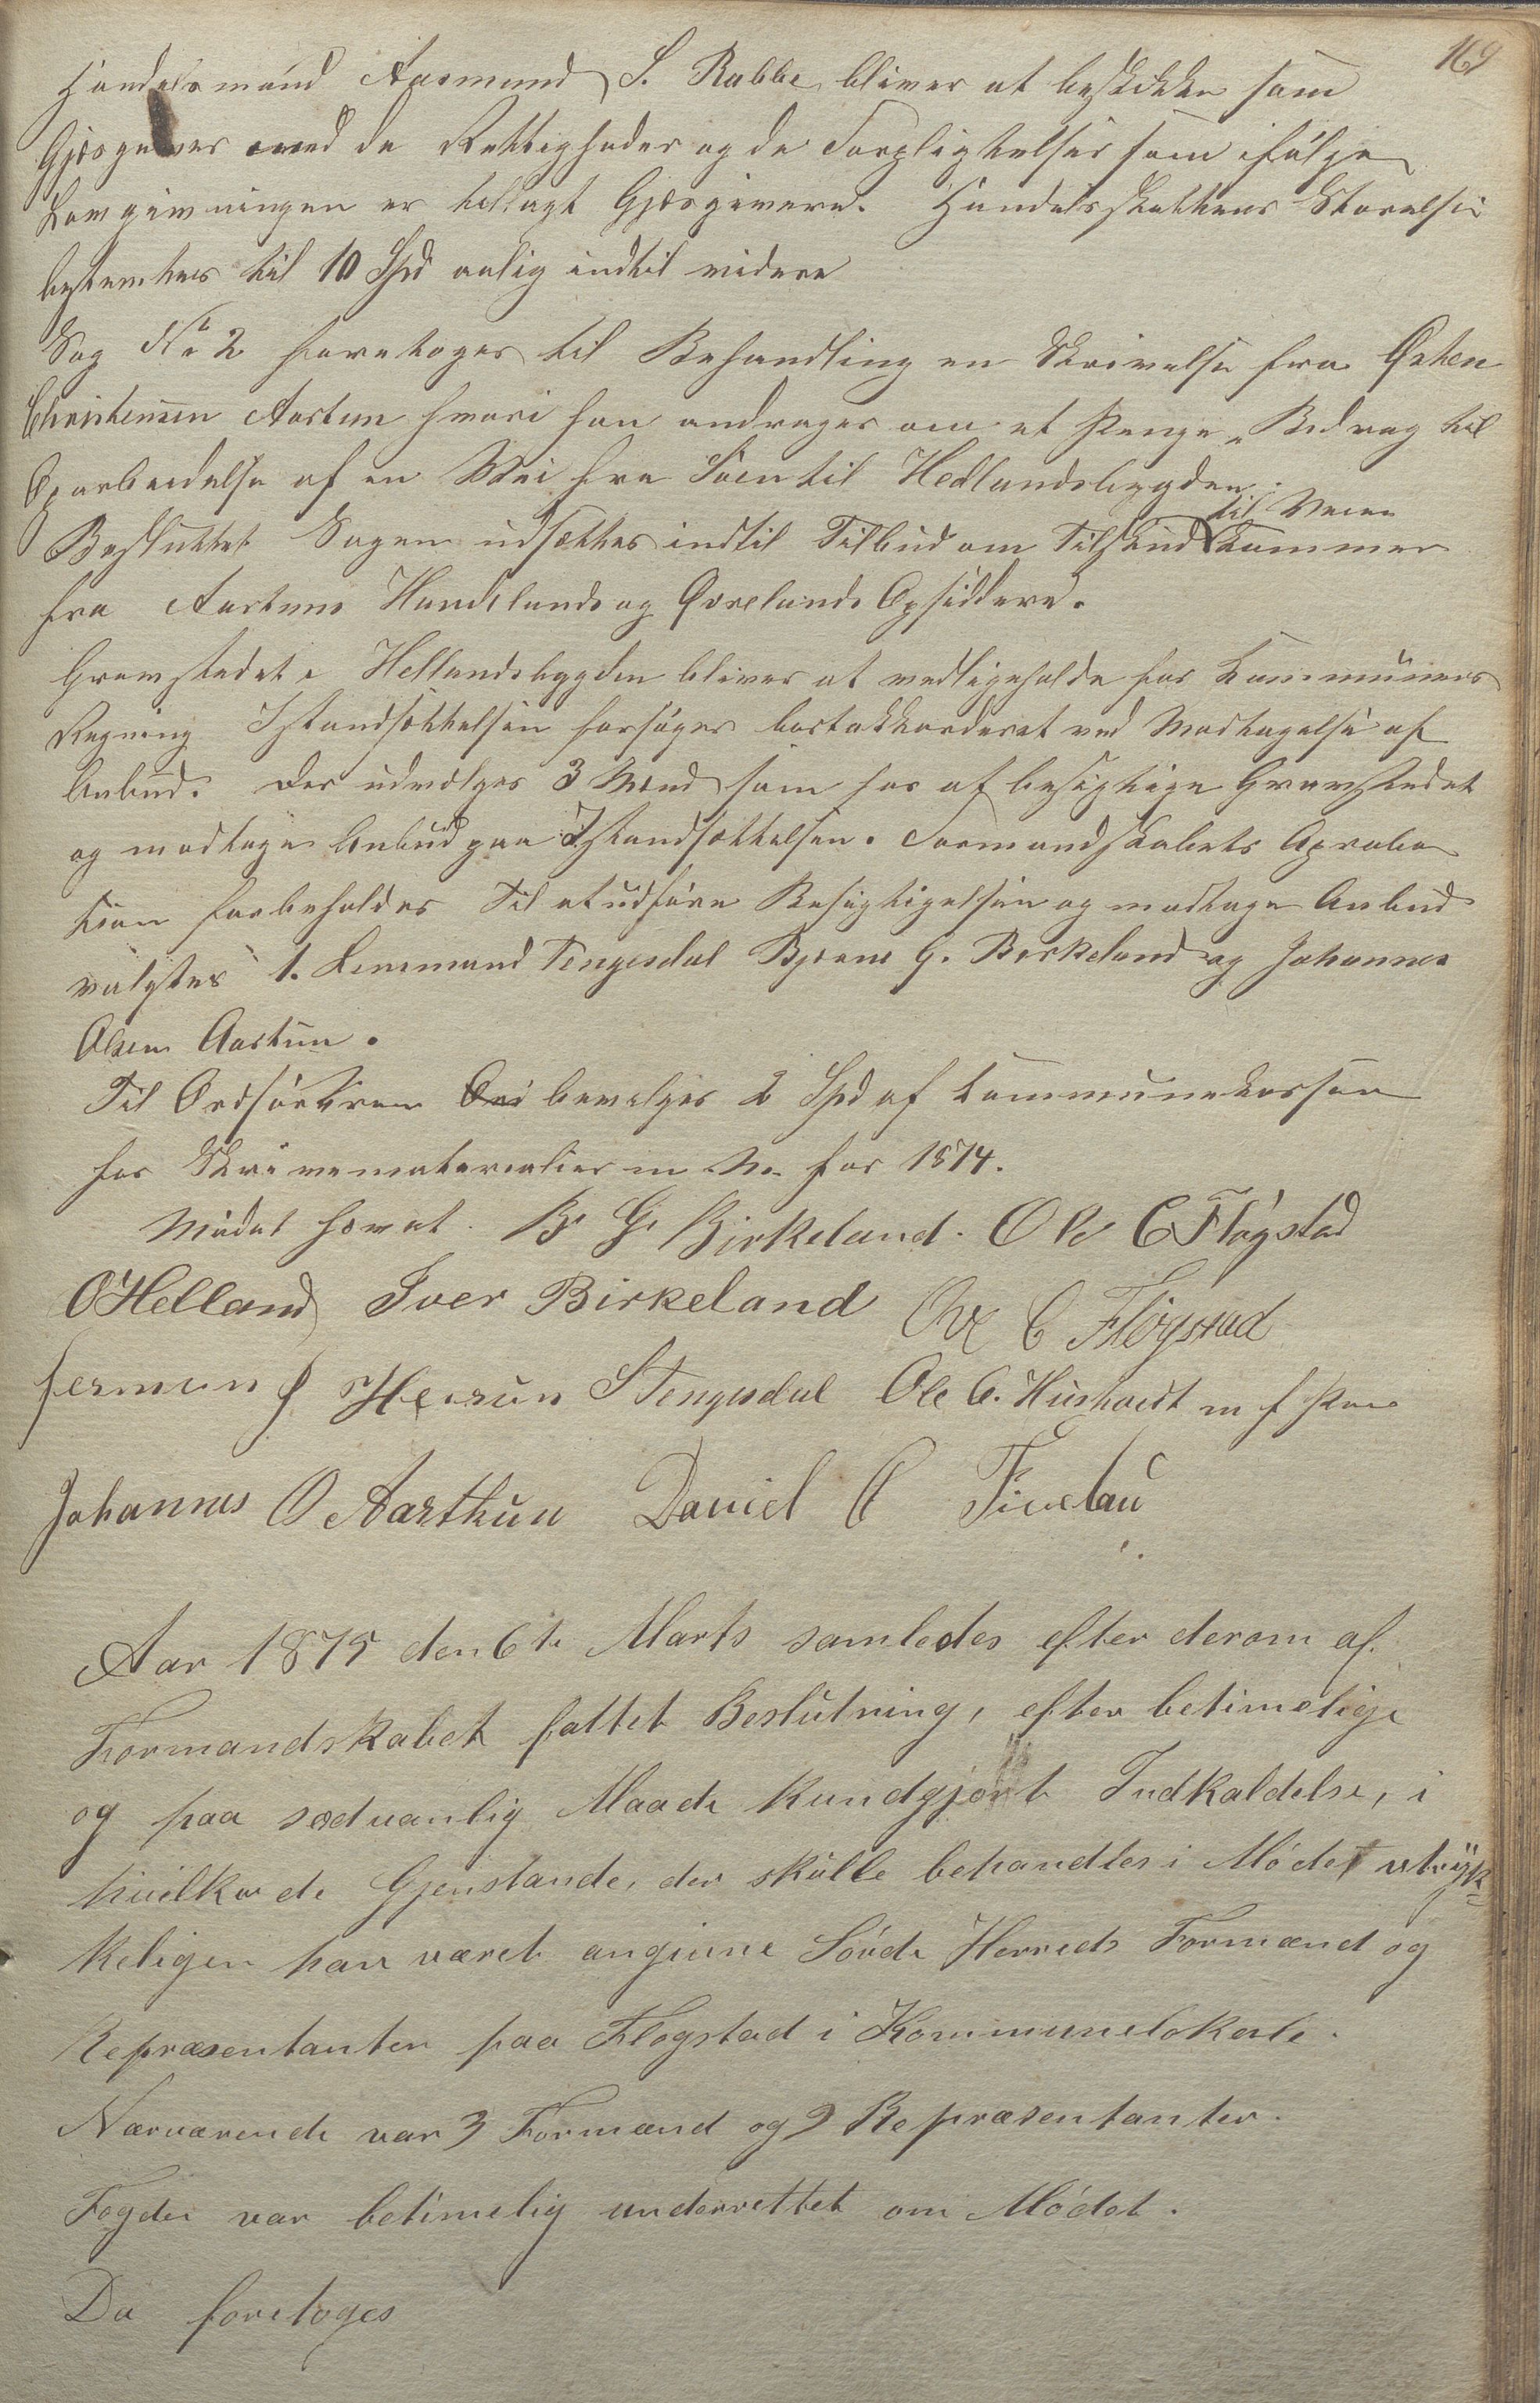 169
Handelsmand Aasmund S. Rabbe bliver at beskikke som
Gjæsgiver med de Rettigheder og de Forpligtelser som ifølge
Lovgivningen er tillagt Gjæsgivere. Handelsskattens Størelse
bestemtes til 10 Spd aarlig indtil videre
Sag No 2 foretoges til Behandling en Skrivelse fra Østen
Christensen Aartun hvori han andrager om et Penge-Bidrag til
Oparbeidelse af en Vei fra Søen til Hedlandsbygden.
til Veien
Besluttet Sagen udsættes indtil Tilbud om Tilskud kommer
fra Aartuns Handelands og Qvelands Opsiddere.
Gravstedet i Hellandsbygden bliver at vedligeholde for Kommunens
Regning Istandsættelsen forsøges bortakkorderet ved Modtagelse af
Anbud. Der udvælges 3 Mænd som har at besigtige Gravstedet
og modtage Anbud paa Istandsættelsen. Formandskabets Aproba
tion forbeholdes Til at udføre Besigtigelsen og modtage Anbud
valgtes 1. Lensmand Tengesdal Bjørne G. Birkeland og Johannes
Olsen Aartun.
Til Ordføreren bevilges 2 Spd af Kommunekassen
for Skrivematerialier m. v. for 1874.
Mødet hævet. B G Birkeland. Ole C Fløgstad
O Helland Iver Birkeland Ove C Fløgstad
Herman Stengesdal Ole C. Hushovdt m f Pen
Johannes O Aarthun Daniel O
Aar 1875 den 6te Marts samledes efter derom af
Formandskabet fattet Beslutning, efter betimelige
og paa sædvanlig Maade kundgjort Indkaldelse, i
hvilke de Gjenstande, der skulle behandles i Mødet utryk-
keligen har været angivne Søvde Herreds Formænd og
Repræsentanter paa Fløgstad i Kommunelokale.
Nærværende var 3 Formænd og 9 Repræsentanter.
Fogden var betimelig underrettet om Mødet.
Da foretoges